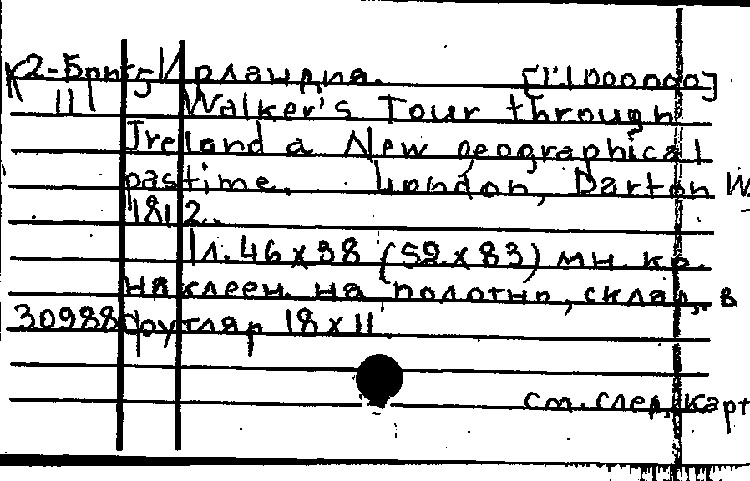 К2-Брит 5 Ирландия. [1:1000000]
11 Walker's Tour through
Ireland a New geographical
pastime. London, Darton W
1812.
1л. 46x38 (52x83) мн. кр.
наклеен. на полотно, склад, в
30988 футляр 18x11
см. след. карт